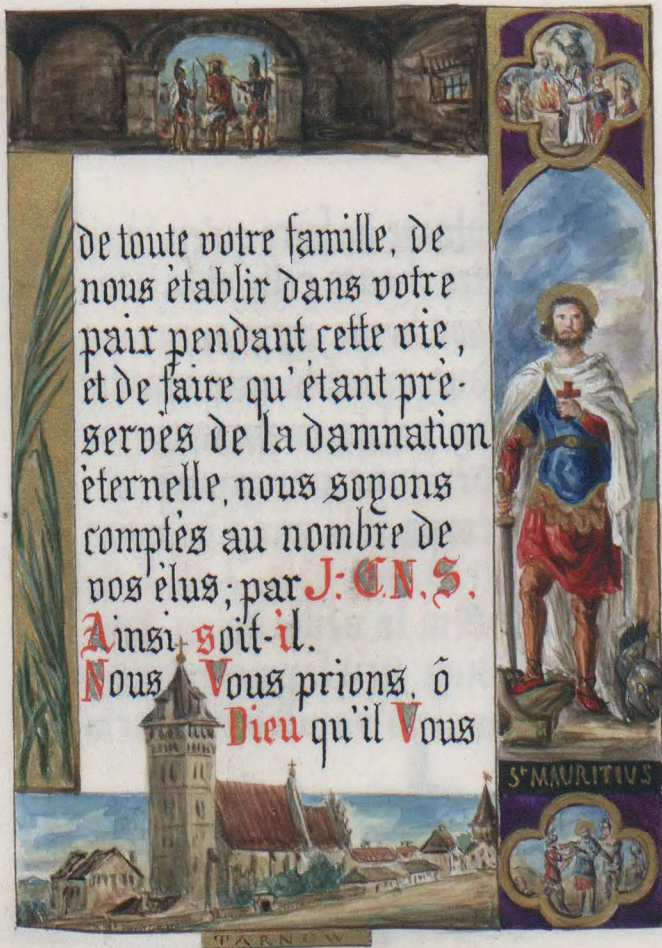 de toute votre famille, de
nous ètablir dans votre
paix pendant cette vie,
et de faire qu'étant prè-
servès de la damnation
èternelle, nous soyons
comptès au nombre de
vos èlus; par J: C. N. S.
Ainsi soit-il.
Nous Vous prions, ô
Dieu qu'il Vous
St MAURITIUS
TARNOW